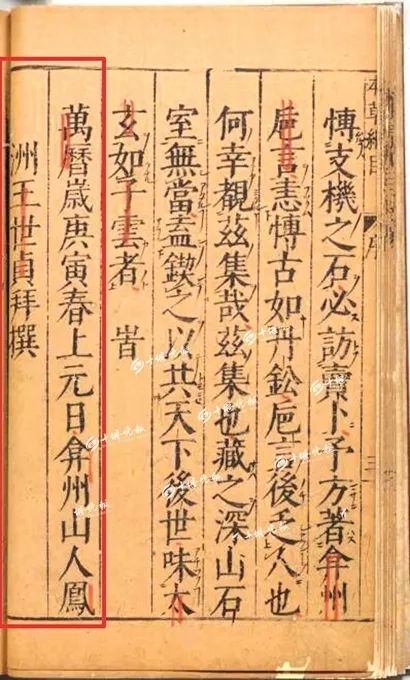 本草綱目 序 三
愽支機之石必訪賣卜予方著弇州
巵言恚愽古如丹鈆巵言後乏人也
何幸覩茲集哉茲集也藏之深山石
室無當盍鍥之以共天下後世味太
玄如子雲者 旹
萬曆歲庚寅春上元日弇州山人鳳
洲王世貞拜撰
十堰晚报